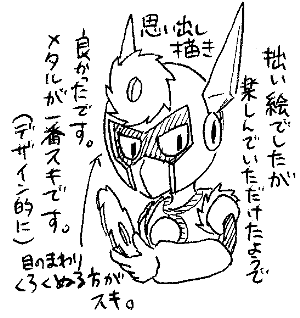 拙い絵でしたが
楽しんでいただけたようで
良かったです。
メタルが一番スキです。
(デザイン的に)
思い出し
描き
目のまわり
くろくぬる方が
スキ。